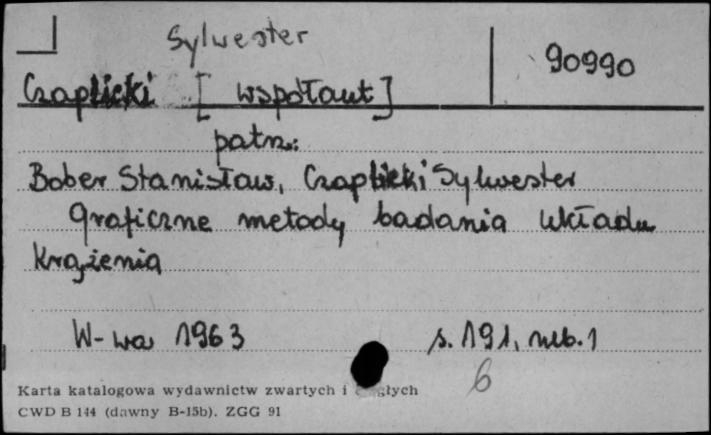 Sylwester
90990
Czaplicki [współaut]
patrz:
Bober Stanisław, Czaplicki Sylwester
Graficzne metody badania układu
krążenia
W-wa 1963 s. 191, nlb. 1
6
Karta katalogowa wydawnictw zwartych i
CWD B 144 (dawny B-15b). ZGG 91